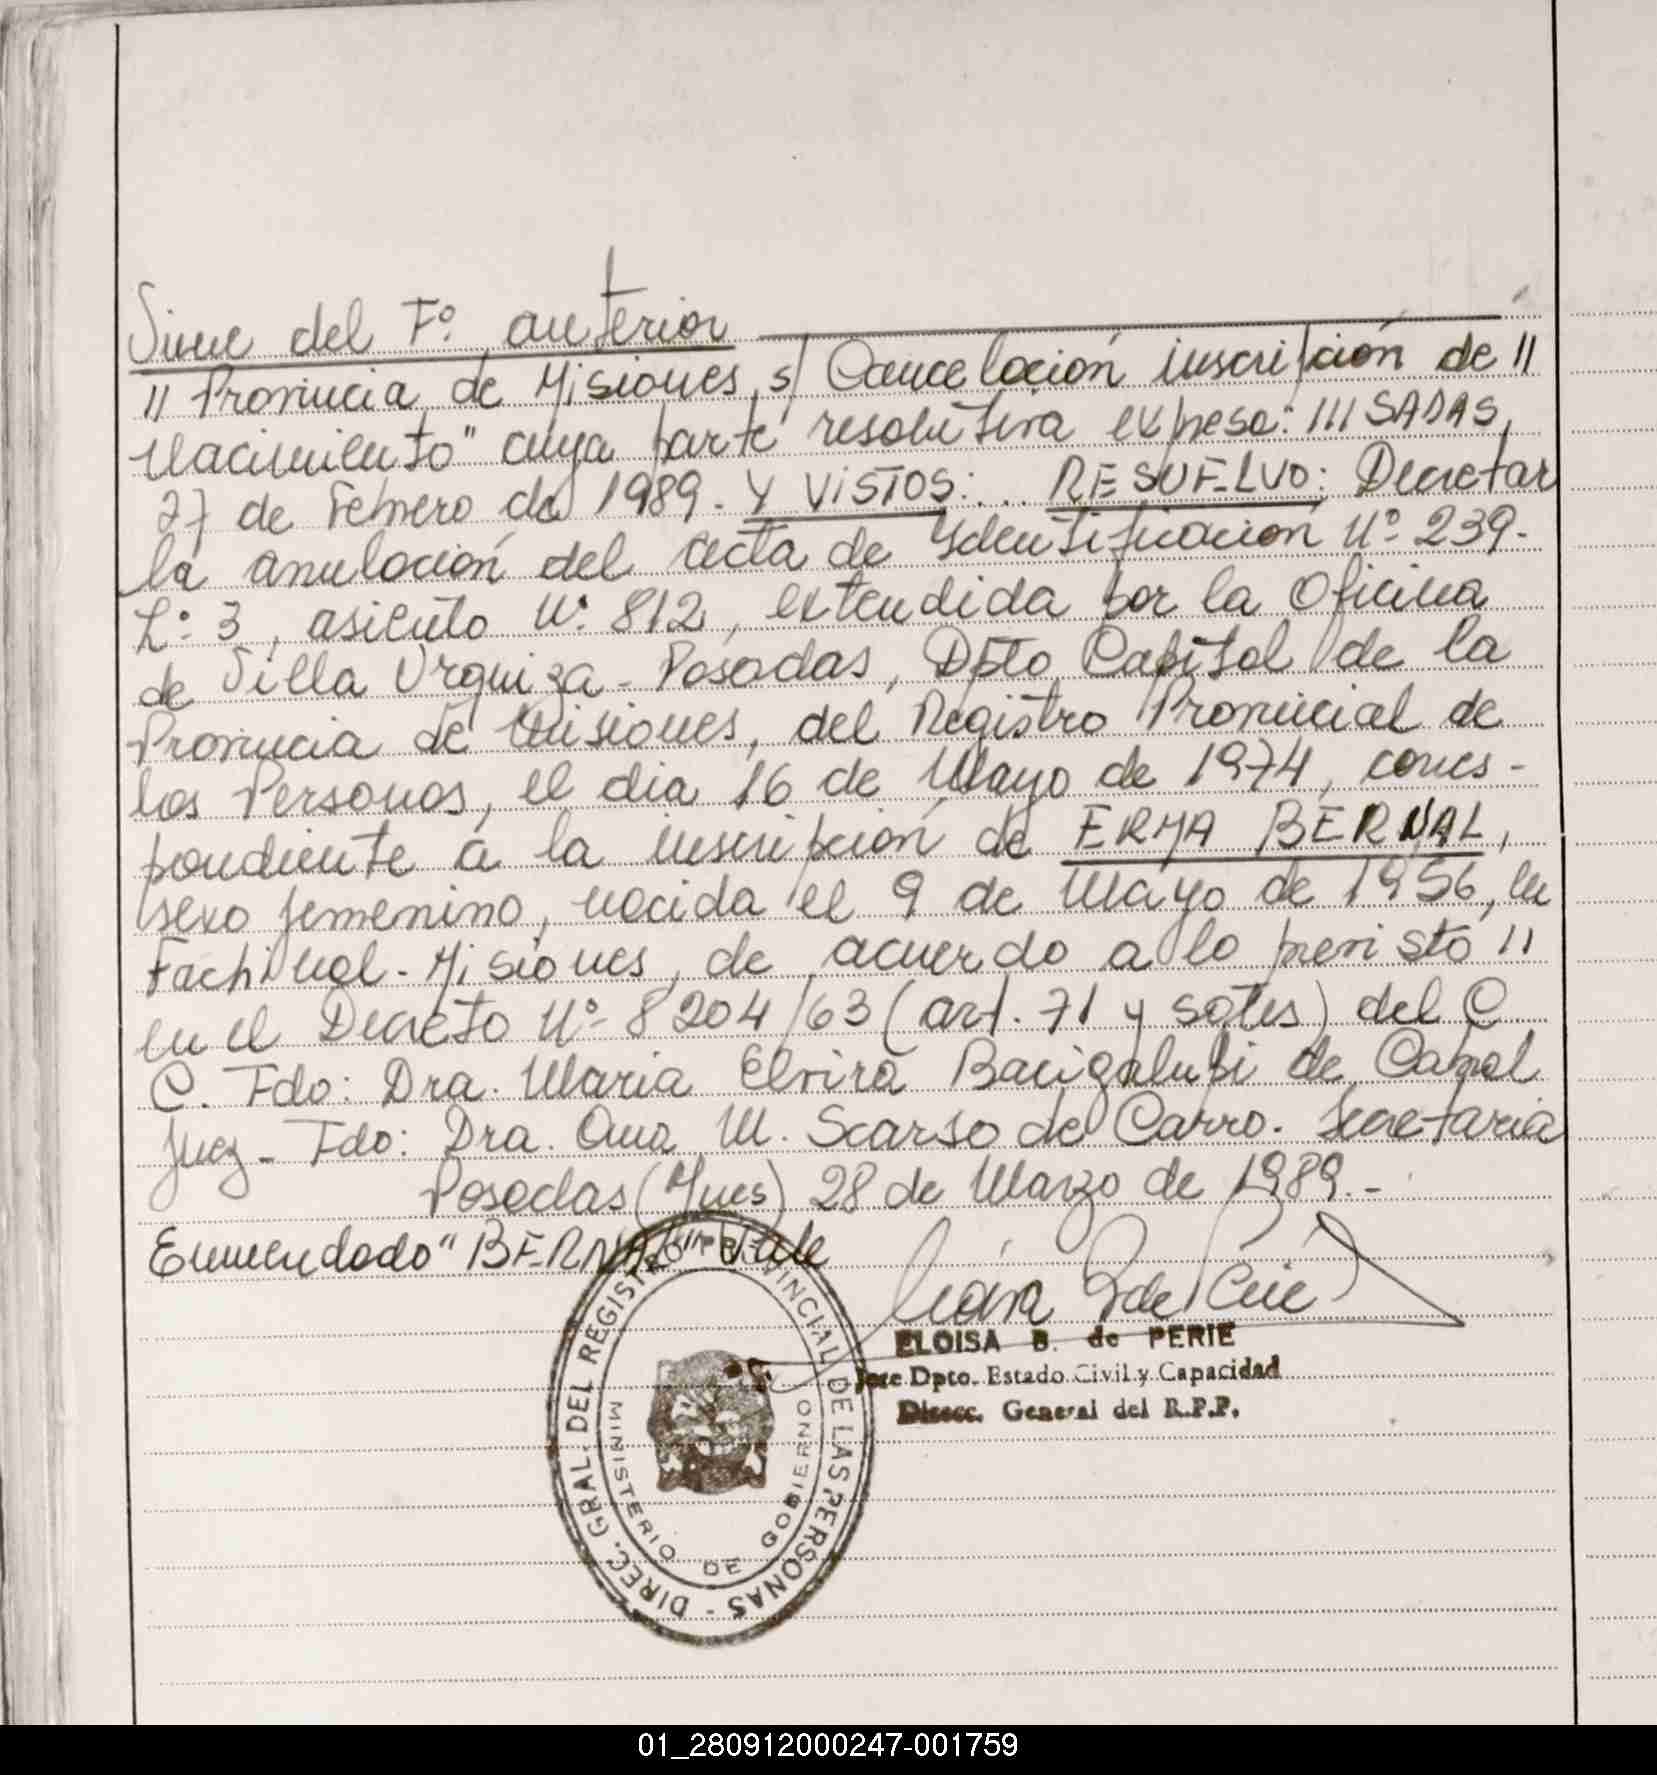 Viene del Fº anterior
" Provincia de Misiones s/ Cancelación inscripción de "
Nacimiento" cuya parte resolutiva expresa: "/SADAS,
27 de Febrero de 1989. Y VISTOS: .. RESUELVO: Decretar
la anulación del acta de Identificación Nº 239-
Lº 3, asiento Nº 812, extendida por la Oficina
de Villa Urquiza - Posadas, Dpto Capital de la
Provincia de Misiones, del Registro Provincial de
las Personas, el dia 16 de Mayo de 1974, corres-
pondiente a la inscripción de ERMA BERNAL,
sexo femenino, nacida el 9 de Mayo de 1956, en
Fachinal - Misiones, de acuerdo a lo previsto "
en el Decreto Nº 8204/63 (art. 71 y sgtes) del C
C. Fdo: Dra. Maria Elvira Bacigalupi de Cabral
Juez - Fdo: Dra. Ana M. Scarso de Carro. Secretaria
Posadas (Mnes) 28 de Marzo de 1989.-
Enmendado "BERNAL" Vale
ELOISA B. de PERIE
Jefe Dpto. Estado Civil y Capacidad
Direcc. General del R.P.P.
DIREC. GRAL. DEL REGISTRO PROVINCIAL DE LAS PERSONAS -
MINISTERIO DE GOBIERNO
01_280912000247-001759